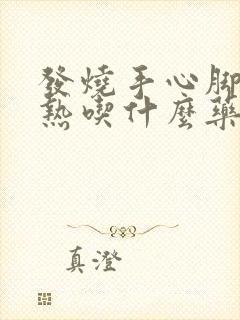 發燒手心腳
熱喫什麼藥
真澄